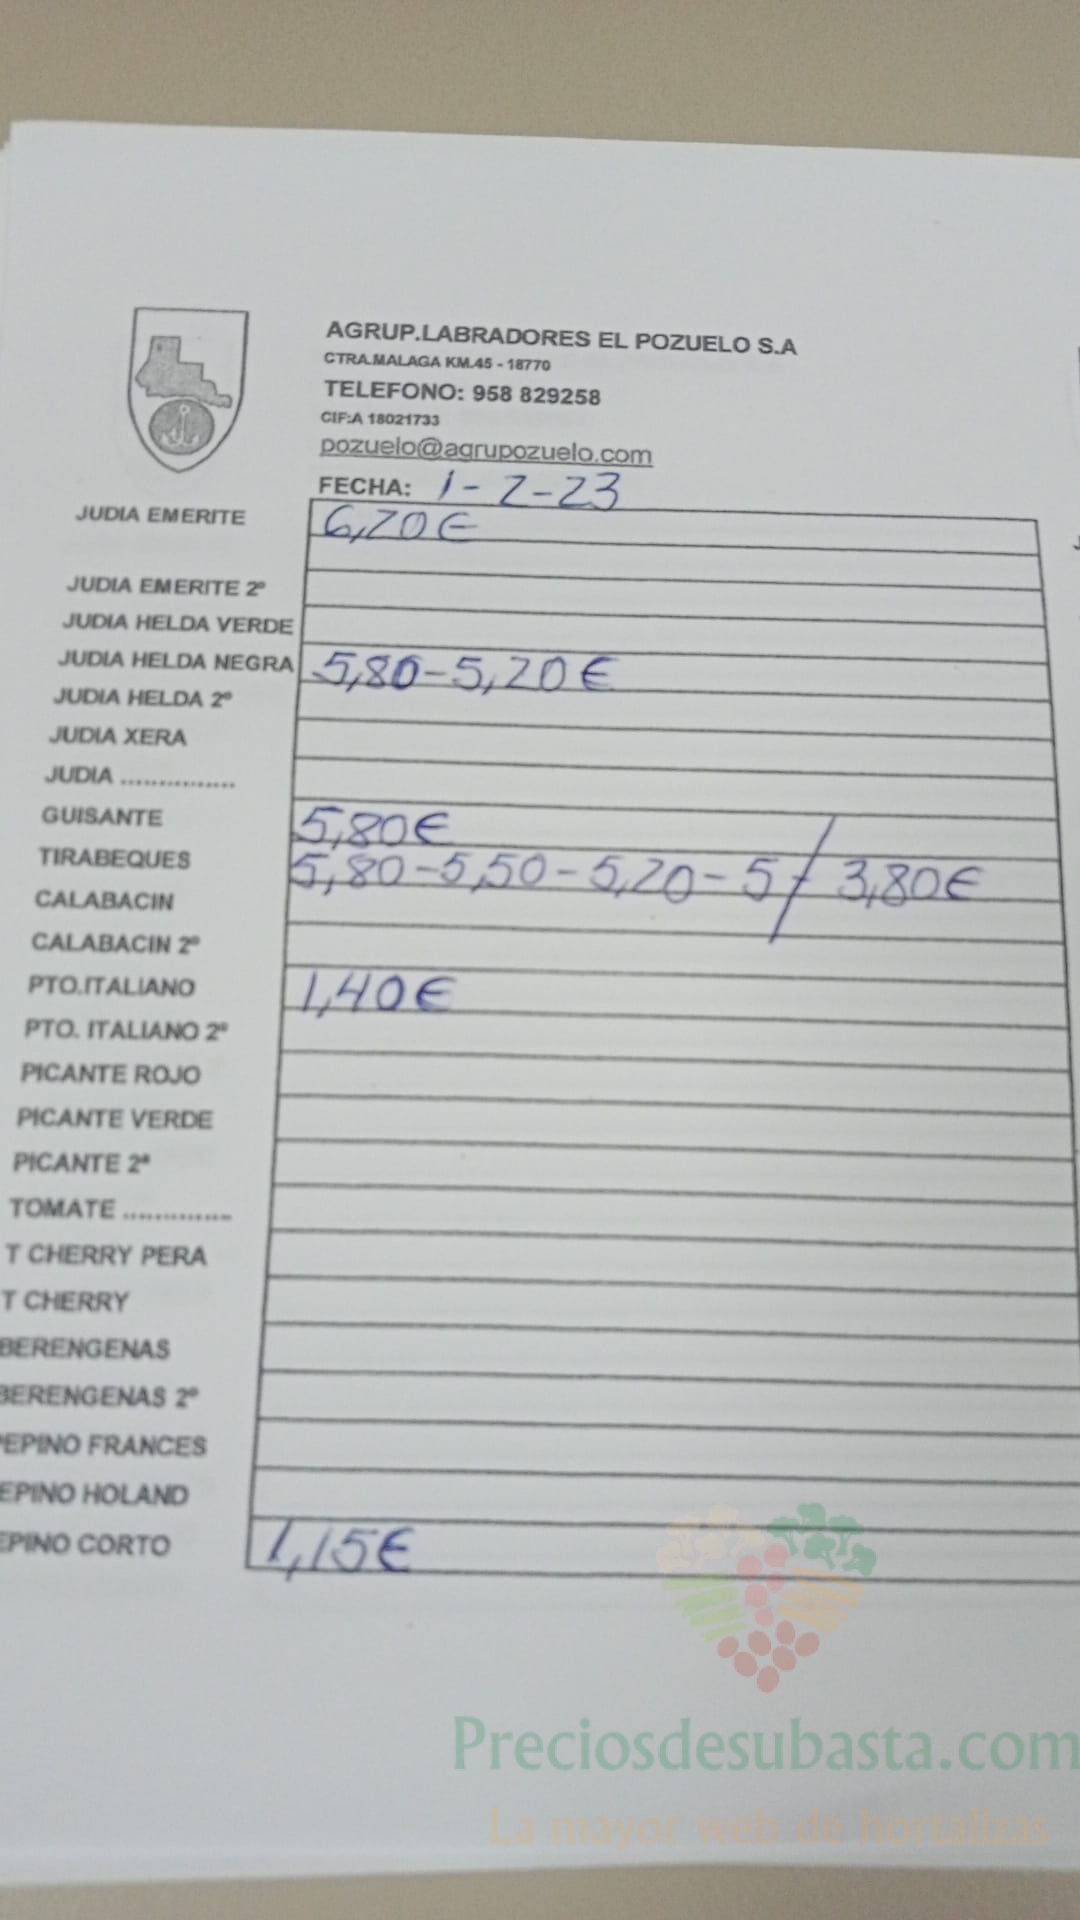 AGRUP.LABRADORES EL POZUELO S.A
CTRA.MALAGA KM.45 - 18770
TELEFONO: 958 829258
CIF:A 18021733
pozuelo@agrupozuelo.com
FECHA: 1-2-23
JUDIA EMERITE 6,20€
JUDIA EMERITE 2º
JUDIA HELDA VERDE
JUDIA HELDA NEGRA 5,80-5,20€
JUDIA HELDA 2º
JUDIA XERA
JUDIA ...............
GUISANTE 5,80€
TIRABEQUES 5,80-5,50-5,20-5 / 3,80€
CALABACIN
CALABACIN 2º
PTO.ITALIANO 1,40€
PTO. ITALIANO 2º
PICANTE ROJO
PICANTE VERDE
PICANTE 2ª
TOMATE ..............
T CHERRY PERA
T CHERRY
BERENGENAS
BERENGENAS 2º
PEPINO FRANCES
EPINO HOLAND
EPINO CORTO 1,15€
Preciosdesubasta.com
La mayor web de hortalizas